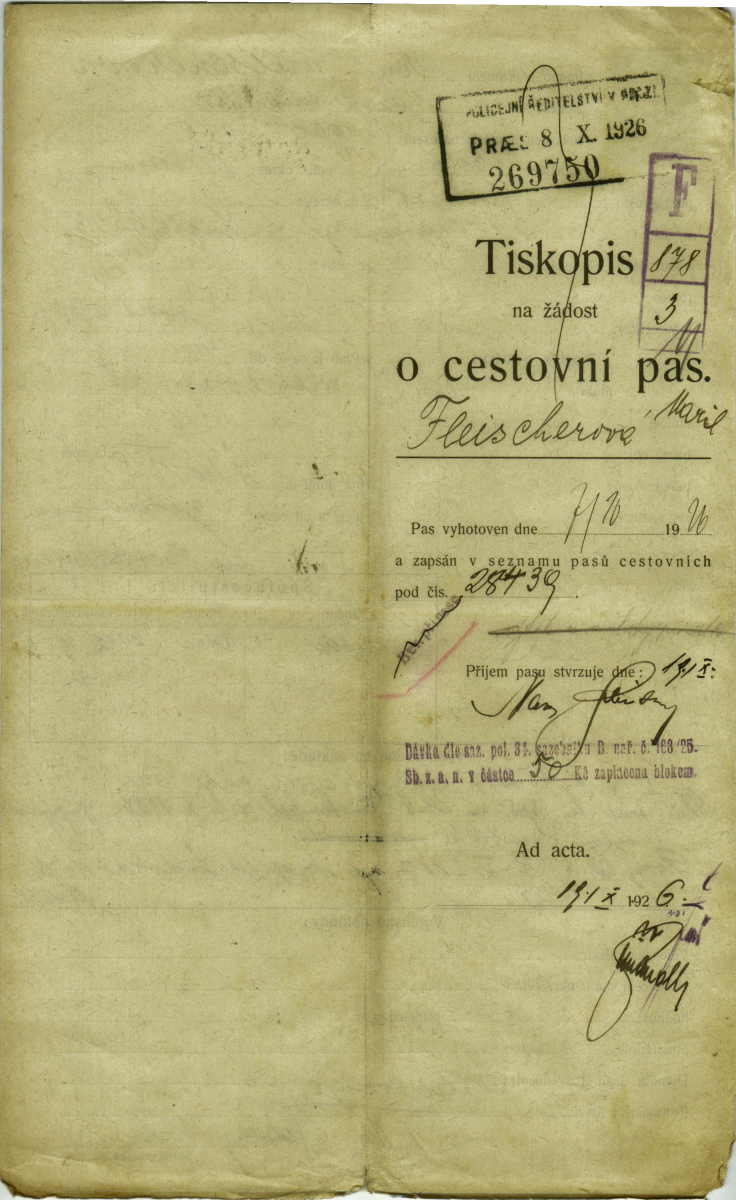 POLICEJNÍ ŘEDITELSTVÍ V PRAZE
PRÆS 8 X. 1926
269750
F
878
3
Tiskopis
na žádost
o cestovní pas.
Fleischerová Marie
Pas vyhotoven dne 7/X 1926
a zapsán v seznamu pasů cestovních
pod čís. 28439.
Příjem pasu stvrzuje dne: 19/X.
Dávka dle saz. pol. 34. sazebníku B. nař. č. 163/25.
Sb. z. a. n. v částce 50 Kč zaplacena blokem.
Ad acta.
19/X 1926